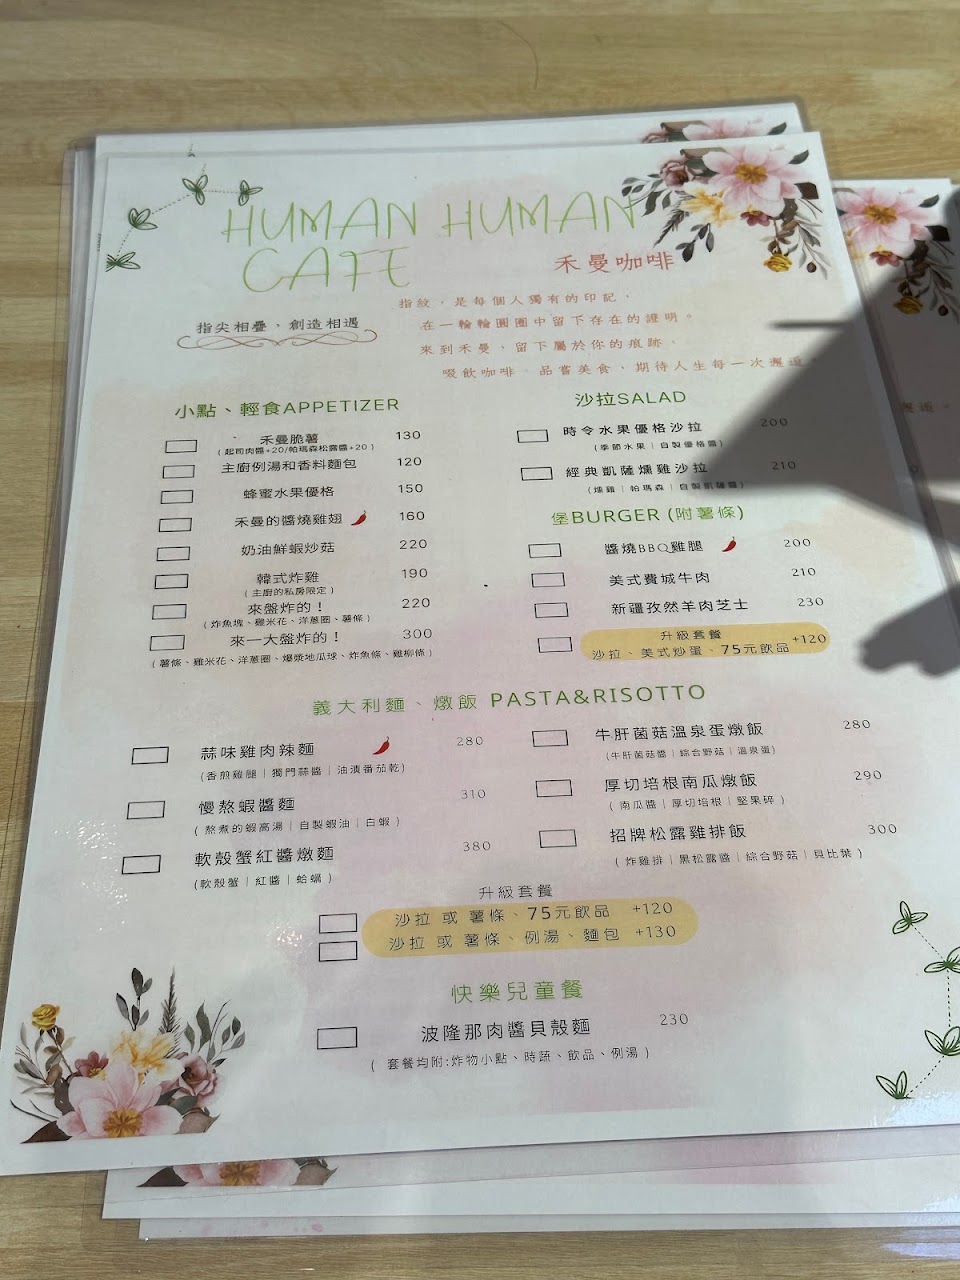 HUMAN HUMAN
CAFE
禾曼咖啡
指尖相疊、創造相遇
指紋，是每個人獨有的印記、
在一輪輪圓圈中留下存在的證明。
來到禾曼、留下屬於你的痕跡、
啜飲咖啡、品嘗美食、期待人生每一次邂逅
小點、輕食APPETIZER
禾曼脆薯 130
(起司肉醬+20/帕瑪森松露醬+20)
主廚例湯和香料麵包 120
蜂蜜水果優格 150
禾曼的醬燒雞翅 160
奶油鮮蝦炒菇 220
韓式炸雞 190
(主廚的私房限定)
來盤炸的! 220
(炸魚塊、雞米花、洋蔥圈、薯條)
來一大盤炸的! 300
(薯條、雞米花、洋蔥圈、爆漿地瓜球、炸魚條、雞柳條)
沙拉SALAD
時令水果優格沙拉 200
(季節水果|自製優格醬)
經典凱薩燻雞沙拉 210
(燻雞|帕瑪森|自製凱薩醬)
堡BURGER (附薯條)
醬燒BBQ雞腿 200
美式費城牛肉 210
新疆孜然羊肉芝士 230
升級套餐
沙拉、美式炒蛋、75元飲品 +120
義大利麵、燉飯 PASTA&RISOTTO
蒜味雞肉辣麵 280
(香煎雞腿|獨門蒜醬|油漬番茄乾)
慢熬蝦醬麵 310
(熬煮的蝦高湯|自製蝦油|白蝦)
軟殼蟹紅醬燉麵 380
(軟殼蟹|紅醬|蛤蠣)
牛肝菌菇溫泉蛋燉飯 280
(牛肝菌菇醬|綜合野菇|溫泉蛋)
厚切培根南瓜燉飯 290
(南瓜醬|厚切培根|堅果碎)
招牌松露雞排飯 300
(炸雞排|黑松露醬|綜合野菇|貝比葉)
升級套餐
沙拉 或 薯條、75元飲品 +120
沙拉 或 薯條、例湯、麵包 +130
快樂兒童餐
波隆那肉醬貝殼麵 230
(套餐均附:炸物小點、時蔬、飲品、例湯)